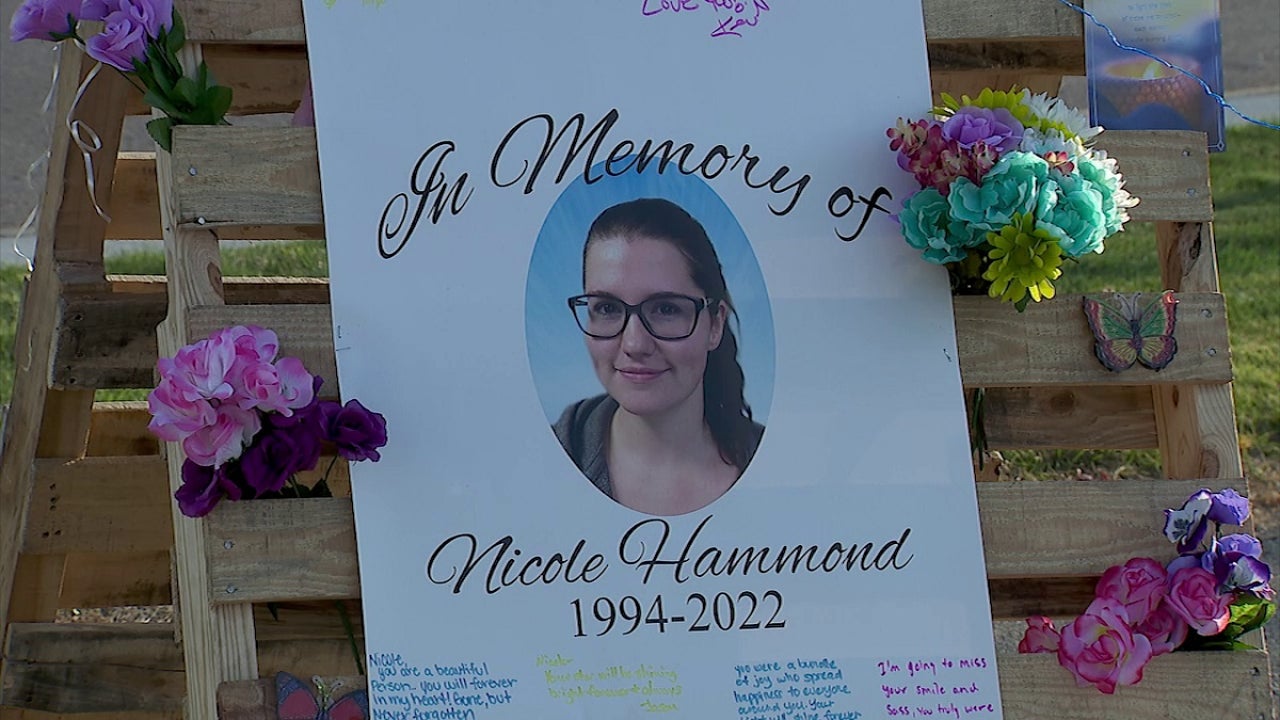 Love
In Memory of
Nicole Hammond
1994-2022
Nicole,
you are a beautiful
Person. You will forever
in my heart! Gone, but
Never forgotten
Your star will be shining
bright forever & always
Jason
You were a bundle
of joy who spread
happiness to everyone
around you. Your
shine forever
I'm going to miss
your smile and
Sass, You truly were